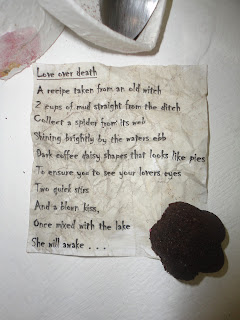 Love over death
A recipe taken from an old witch
2 cups of mud straight from the ditch
Collect a spider from its web
Shining brightly by the waters ebb
Dark coffee daisy shapes that looks like pies
To ensure you to see your lovers eyes
Two quick stirs
And a blown kiss,
Once mixed with the lake
She will awake . . .